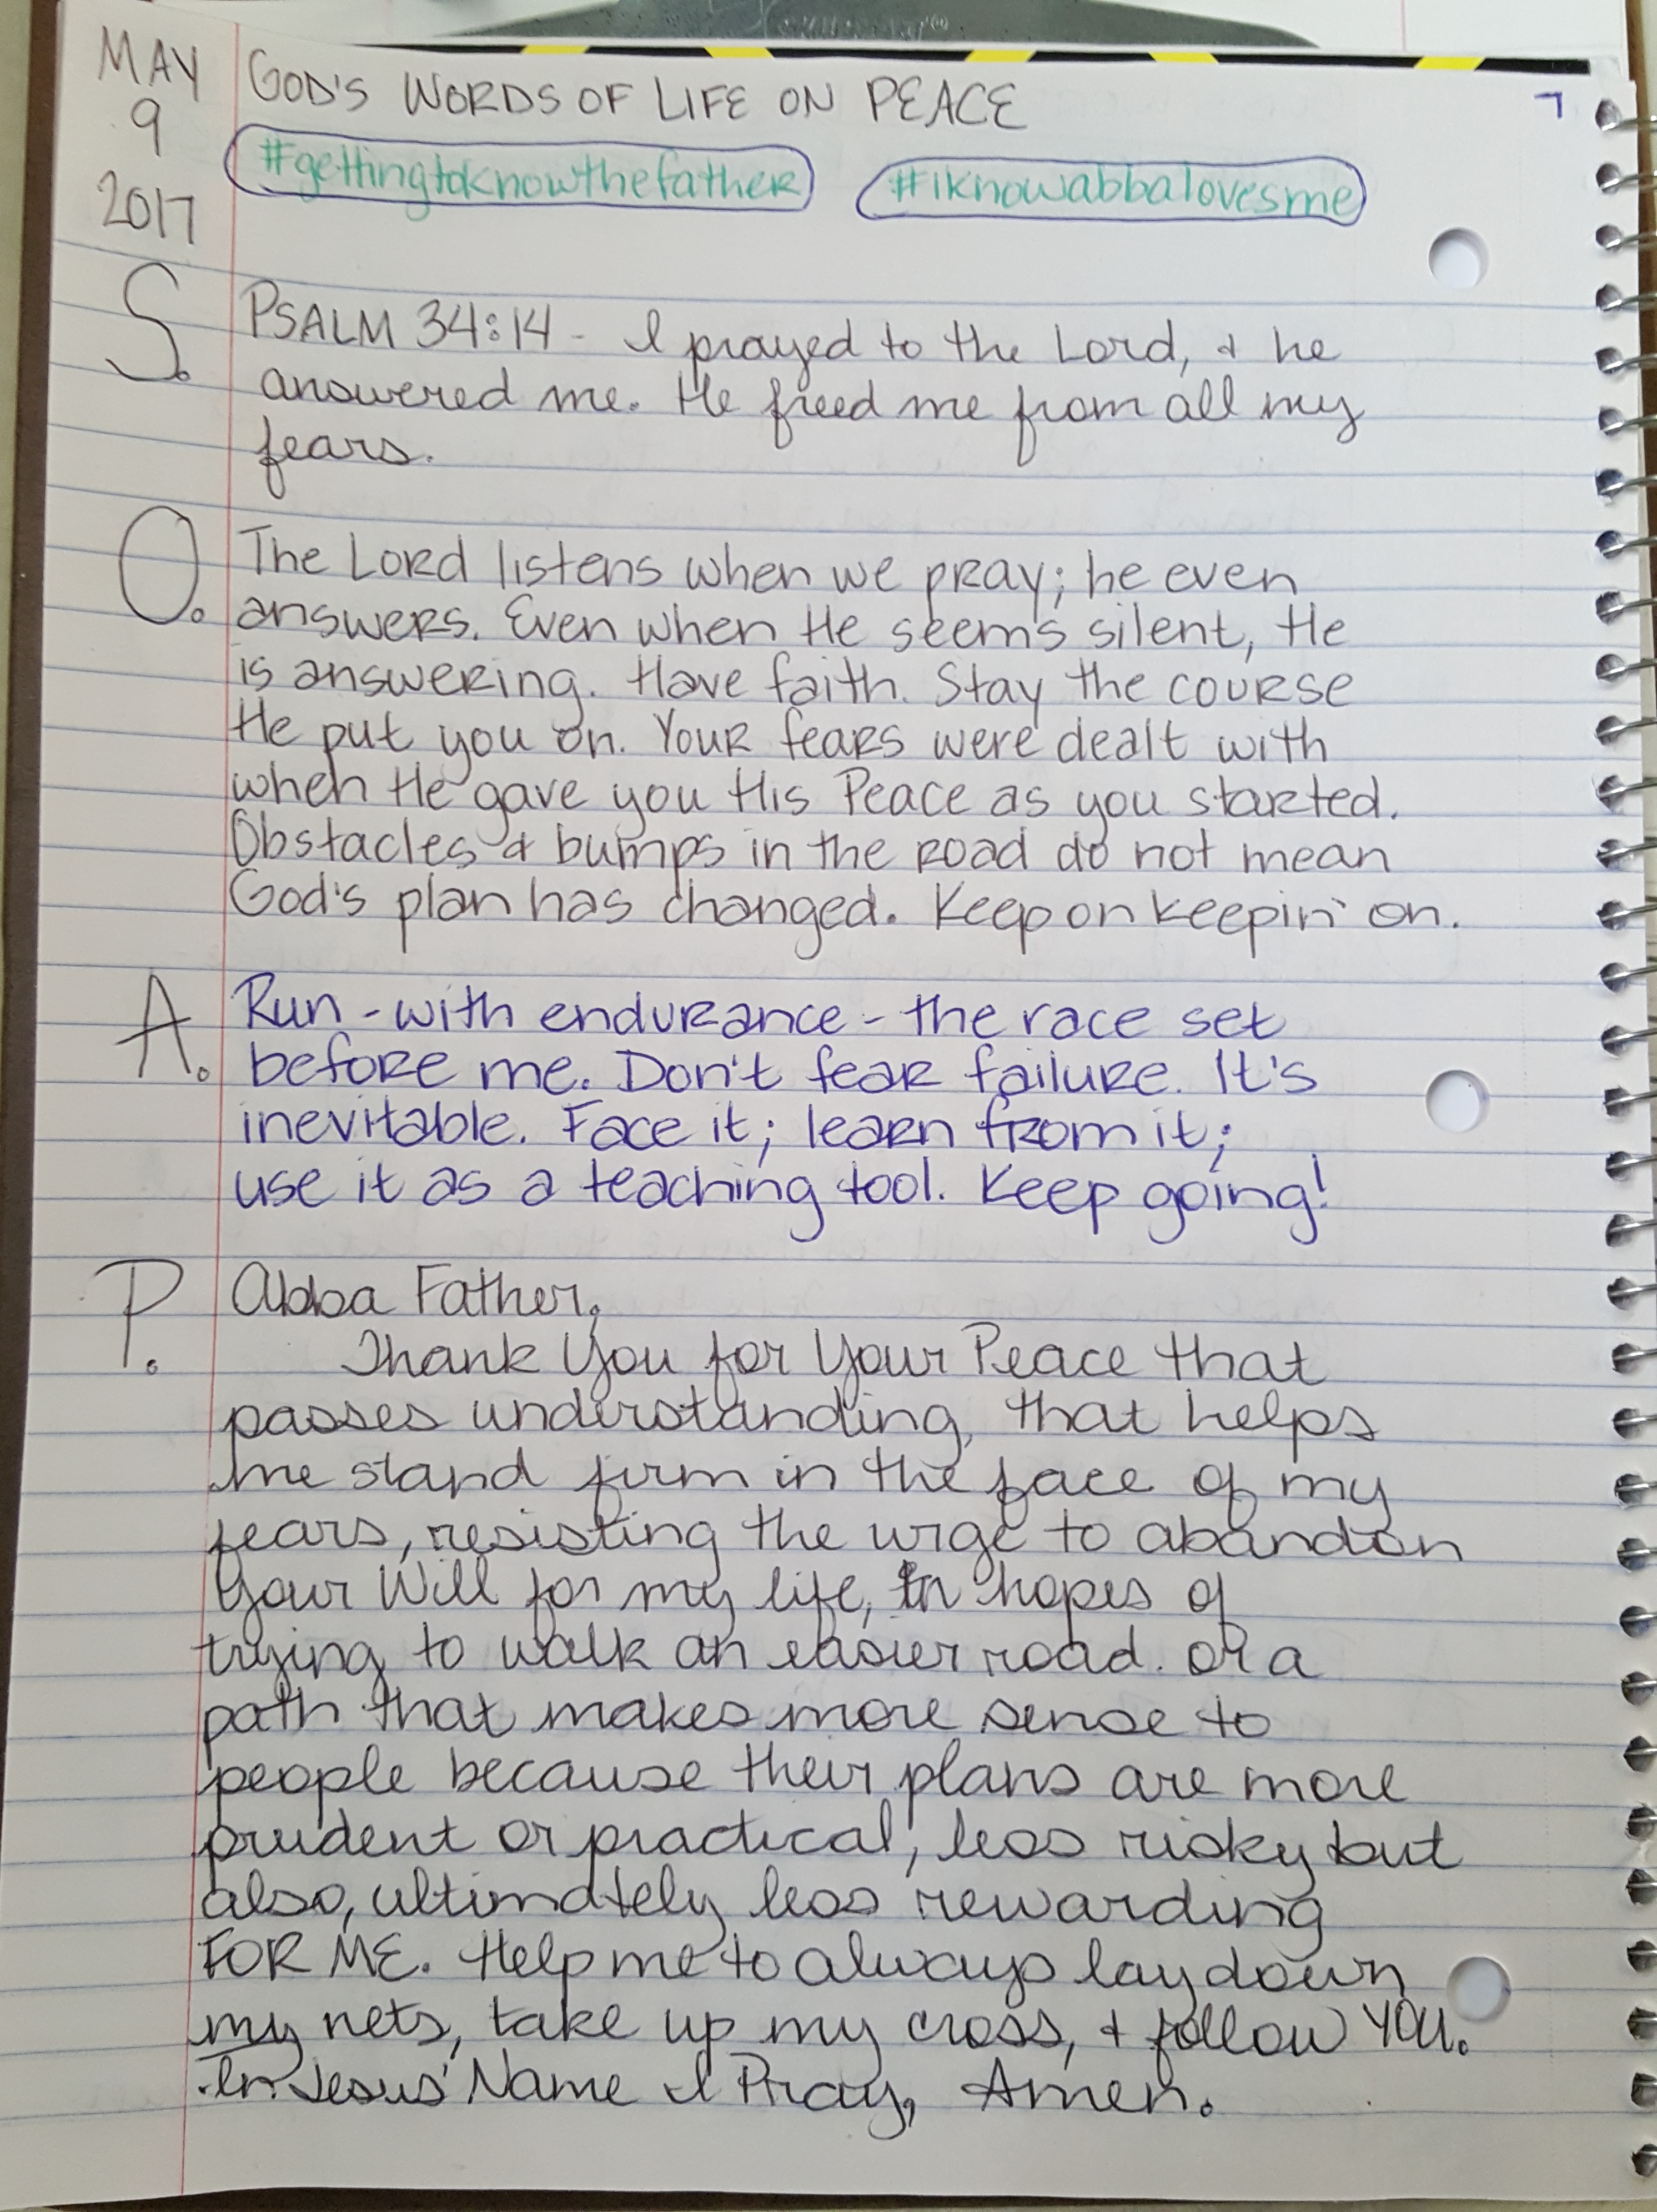 MAY
9
2017
GOD'S WORDS OF LIFE ON PEACE
7
#gettingtoknowthefather #iknowabbalovesme
S. PSALM 34:14 - I prayed to the Lord, & he
answered me. He freed me from all my
fears.
O. The Lord listens when we pray; he even
answers. Even when He seems silent, He
is answering. Have faith. Stay the course
He put you on. Your fears were dealt with
when He gave you His Peace as you started.
Obstacles & bumps in the road do not mean
God's plan has changed. Keep on keepin' on.
A. Run - with endurance - the race set
before me. Don't fear failure. It's
inevitable. Face it; learn from it;
use it as a teaching tool. Keep going!
P. Abba Father,
Thank You for Your Peace that
passes understanding, that helps
me stand firm in the face of my
fears, resisting the urge to abandon
Your Will for my life, in hopes of
trying to walk an easier road. or a
path that makes more sense to
people because their plans are more
prudent or practical, less risky but
also, ultimately less rewarding
FOR ME. Help me to always lay down
my nets, take up my cross, & follow YOU.
In Jesus' Name I Pray, Amen.